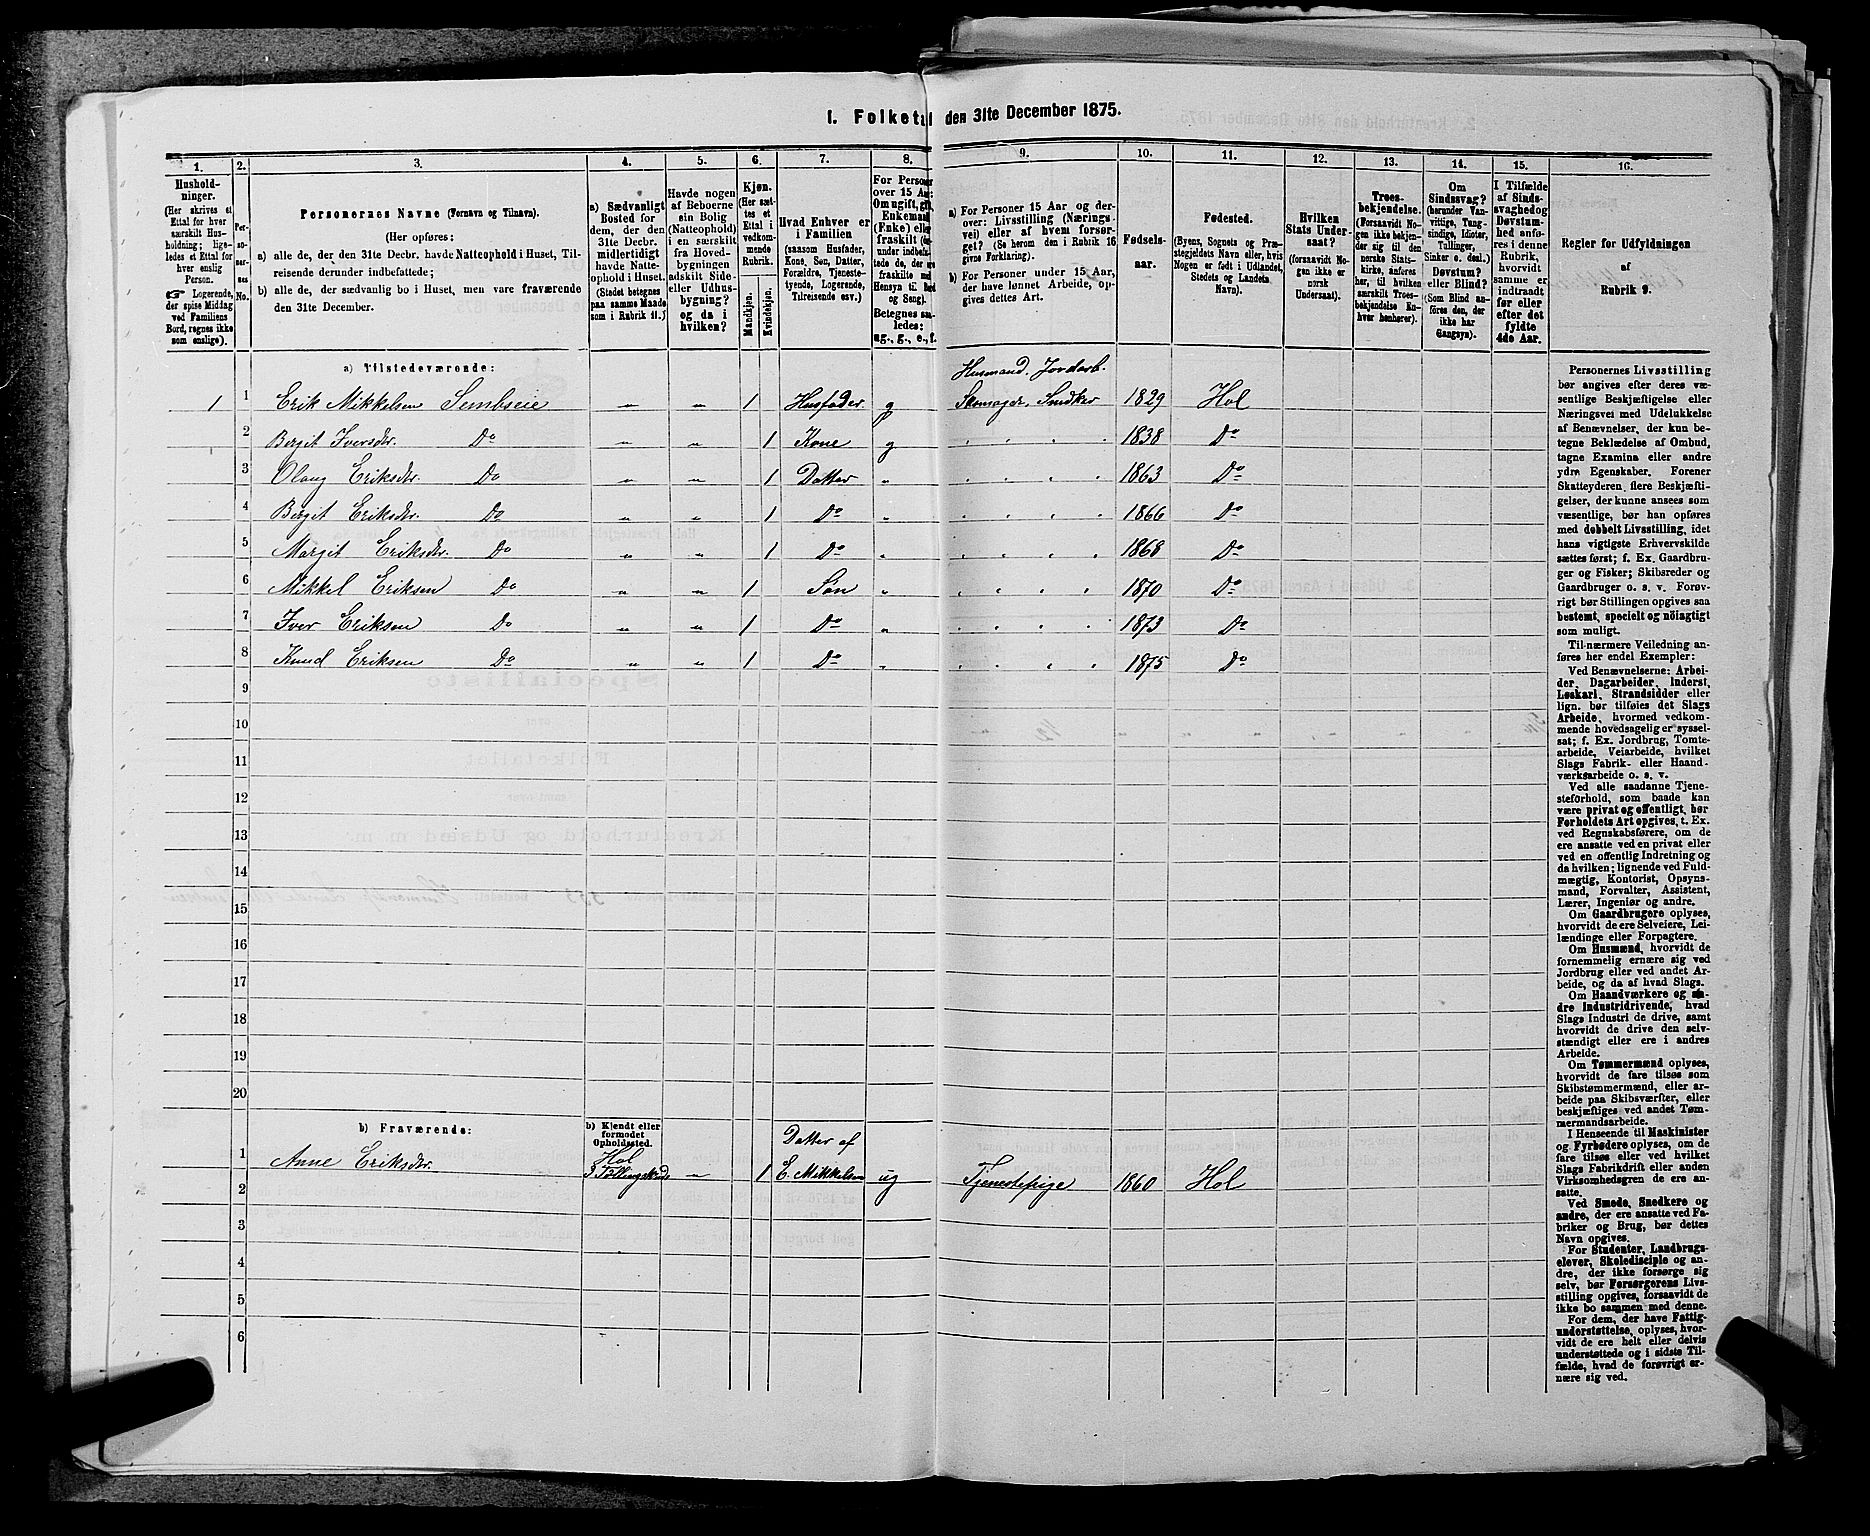 I. Folketal den 31te December 1875.
1. 2. 3. 4. 5. 6. 7. 8. 9. 10. 11. 12. 13. 14. 15. 16.
Hushold-
ninger.
(Her skrives et
Ettal for hver
særskilt Hus-
holdning; lige-
ledes et Ettal for
hver enslig
Person.
☞ Logerende,
der spise Middag
ved Familiens
Bord, regnes ikke
som enslige).
Per-
so-
ner-
nes
No.
Personernes Navne (Fornavn og Tilnavn).
(Her opføres:
a) alle de, der den 31te Decbr. havde Natteophold i Huset, Til-
reisende derunder indbefattede;
b) alle de, der sædvanlig bo i Huset, men vare fraværende
den 31te December.
a) Sædvanligt
Bosted for
dem, der den
31te Decbr.
midlertidigt
havde Natte-
ophold i Huset.
(Stedet betegnes
paa samme Maade
som i Rubrik 11.)
Havde nogen
af Beboerne
sin Bolig
(Natteophold)
i en særskilt
fra Hoved-
bygningen
adskilt Side-
eller Udhus-
bygning?
og da i
hvilken?
Kjøn.
(Her sæt-
tes et
Ettal i
vedkom-
mende
Rubrik.
Mandkjøn.
Kvindekjøn.
Hvad Enhver er
i Familien
(saasom Husfader,
Kone, Søn, Datter,
Forældre, Tjeneste-
tyende, Logerende,
Tilreisende osv.)
For Personer
over 15 Aar:
Om ugift, gift,
Enkemand
(Enke) eller
fraskilt
Betegnes saa-
ledes:
ug., g., e., f.
a) For Personer 15 Aar og der-
over: Livsstilling (Nærings-
vei) eller af hvem forsør-
get? (Se herom den i Rubrik 16
givne Forklaring).
b) For Personer under 15 Aar,
der have lønnet Arbeide, op-
gives dettes Art.
Fødsels-
aar.
Fødested.
(Byens, Sognets og Præ-
stegjeldets Navn eller, hvis
Nogen er født i Udlandet,
Stedets og Landets
Navn).
Hvilken
Stats Under-
saat?
(forsaavidt No-
gen ikke er
norsk
Undersaat).
Troes-
bekjendelse.
(Forsaavidt No-
gen ikke bekjen-
der sig til den
norske Stats-
kirke, anføres
her, til hvilken
særskilt Troes-
bekjendelse En-
hver henhører).
Om
Sindssvag?
(herunder Van-
vittige, Tung-
sindige, Idioter,
Tullinger,
Sinker o. desl.)
Døvstum?
eller Blind?
(Som Blind an-
føres den, der
ikke har
Gangsyn).
I Tilfælde
af Sinds-
svaghed og
Døvstum-
hed anfø-
res i denne
Rubrik,
hvorvidt
samme er
indtraadt
før eller
efter det
fyldte
4de Aar.
Regler for Udfyldningen
af
Rubrik 9.
a) Tilstedeværende:
Husmand. Jordarb.
1 1 Erik Mikkelsen Sembseie „ „ 1 Husfader g Skomager, Snedker 1829 Hol
2 Bergit Iversdtr. Do „ „ 1 Kone g 1838 Do
3 Olaug Eriksdtr. Do „ „ 1 Datter „ 1863 Do
4 Bergit Eriksdtr. Do „ „ 1 Do „ 1866 Do
5 Margit Eriksdtr. Do „ „ 1 Do „ 1868 Do
6 Mikkel Eriksen Do „ „ 1 Søn „ 1870 Do
7 Iver Eriksen Do „ „ 1 Do „ 1873 Do
8 Knud Eriksen Do „ „ 1 Do „ 1875 Do
9
10
11
12
13
14
15
16
17
18
19
20
b) Fraværende:
b) Kjendt eller
formodet
Opholdssted.
1 Anne Eriksdtr. Hol 3 Tællingskreds „ 1 Datter af E. Mikkelsen ug Tjenestepige 1860 Hol
2
3
4
5
6
Personernes Livsstilling
bør angives efter deres væ-
sentlige Beskjæftigelse eller
Næringsvei med Udelukkelse
af Benævnelser, der kun be-
tegne Beklædelse af Ombud,
tagne Examina eller andre
ydre Egenskaber. Forener
Skatteyderen flere Beskjæfti-
gelser, der kunne ansees som
væsentlige, bør han opføres
med dobbelt Livsstilling, idet
hans vigtigste Erhvervskilde
sættes først; f. Ex. Gaardbru-
ger og Fisker; Skibsreder og
Gaardbruger o. s. v. Forøv-
rigt bør Stillingen opgives saa
bestemt, specielt og nöiagtigt
som muligt.
Til nærmere Veiledning an-
føres her endel Exempler:
Ved Benævnelserne: Arbei-
der, Dagarbeider, Inderst,
Løskarl, Strandsidder eller
lign. bør tilføies det Slags
Arbeide, hvormed vedkom-
mende hovedsagelig er syssel-
sat; f. Ex. Jordbrug, Tomte-
arbeide, Veiarbeide, hvilket
Slags Fabrik- eller Haand-
værksarbeide o. s. v.
Ved alle saadanne Tjene-
steforhold, som baade kan
være privat og offentligt, bør
Forholdets Art opgives, t. Ex.
ved Regnskabsførere, om de
ere ansatte ved en privat eller
ved en offentlig Indretning og
da hvilken; lignende ved Fuld-
mægtig, Kontorist, Opsyns-
mand, Forvalter, Assistent,
Lærer, Ingeniør og andre.
Om Gaardbrugere oplyses,
hvorvidt de ere Selveiere, Lei-
lændinge eller Forpagtere.
Om Husmænd, hvorvidt de
fornemmelig ernære sig ved
Jordbrug eller ved andet Ar-
beide, og da af hvad Slags.
Om Haandværkere og an-
dre Industridrivende, hvad
Slags Industri de drive, samt
hvorvidt de drive den selv-
stændigt eller ere i andres
Arbeide.
Om Tømmermænd oplyses,
hvorvidt de fare tilsøs som
Skibstømmermænd, eller ar-
beide paa Skibsværfter, eller
beskjæftiges ved andet Tøm-
mermandsarbeide.
I Henseende til Maskinister
og Fyrbødere oplyses, om de
fare tilsøs eller ved hvilket
Slags Fabrikdrift eller anden
Virksomhedsgren de ere an-
satte.
Ved Smede, Snedkere og
andre, der ere ansatte ved Fa-
briker og Brug, bør dettes
Navn opgives.
For Studenter, Landbrugs-
elever, Skoledisciple og an-
dre, der ikke forsørge sig
selv, bør Forsørgerens Livs-
stilling opgives, forsaavidt de
ikke bo sammen med denne.
For dem, der have Fattig-
understøttelse, oplyses, hvor-
vidt de ere helt eller delvis
understøttede og i sidste Til-
fælde, hvad de forøvrigt er-
nære sig ved.